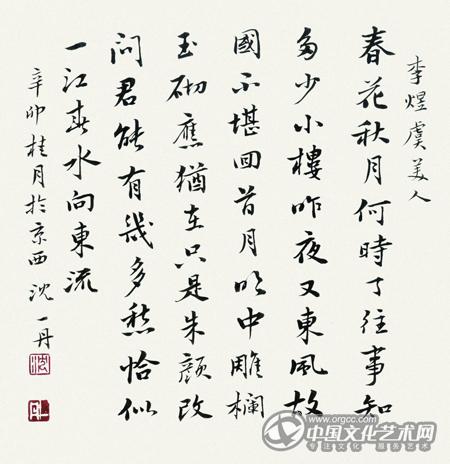 李煜虞美人
春花秋月何時了往事知
多少小樓昨夜又東風故
國不堪回首月明中雕欄
玉砌應猶在只是朱顏改
問君能有幾多愁恰似
一江春水向東流
辛卯桂月於京西沈一丹
www.orgcc.com
中国文化艺术网